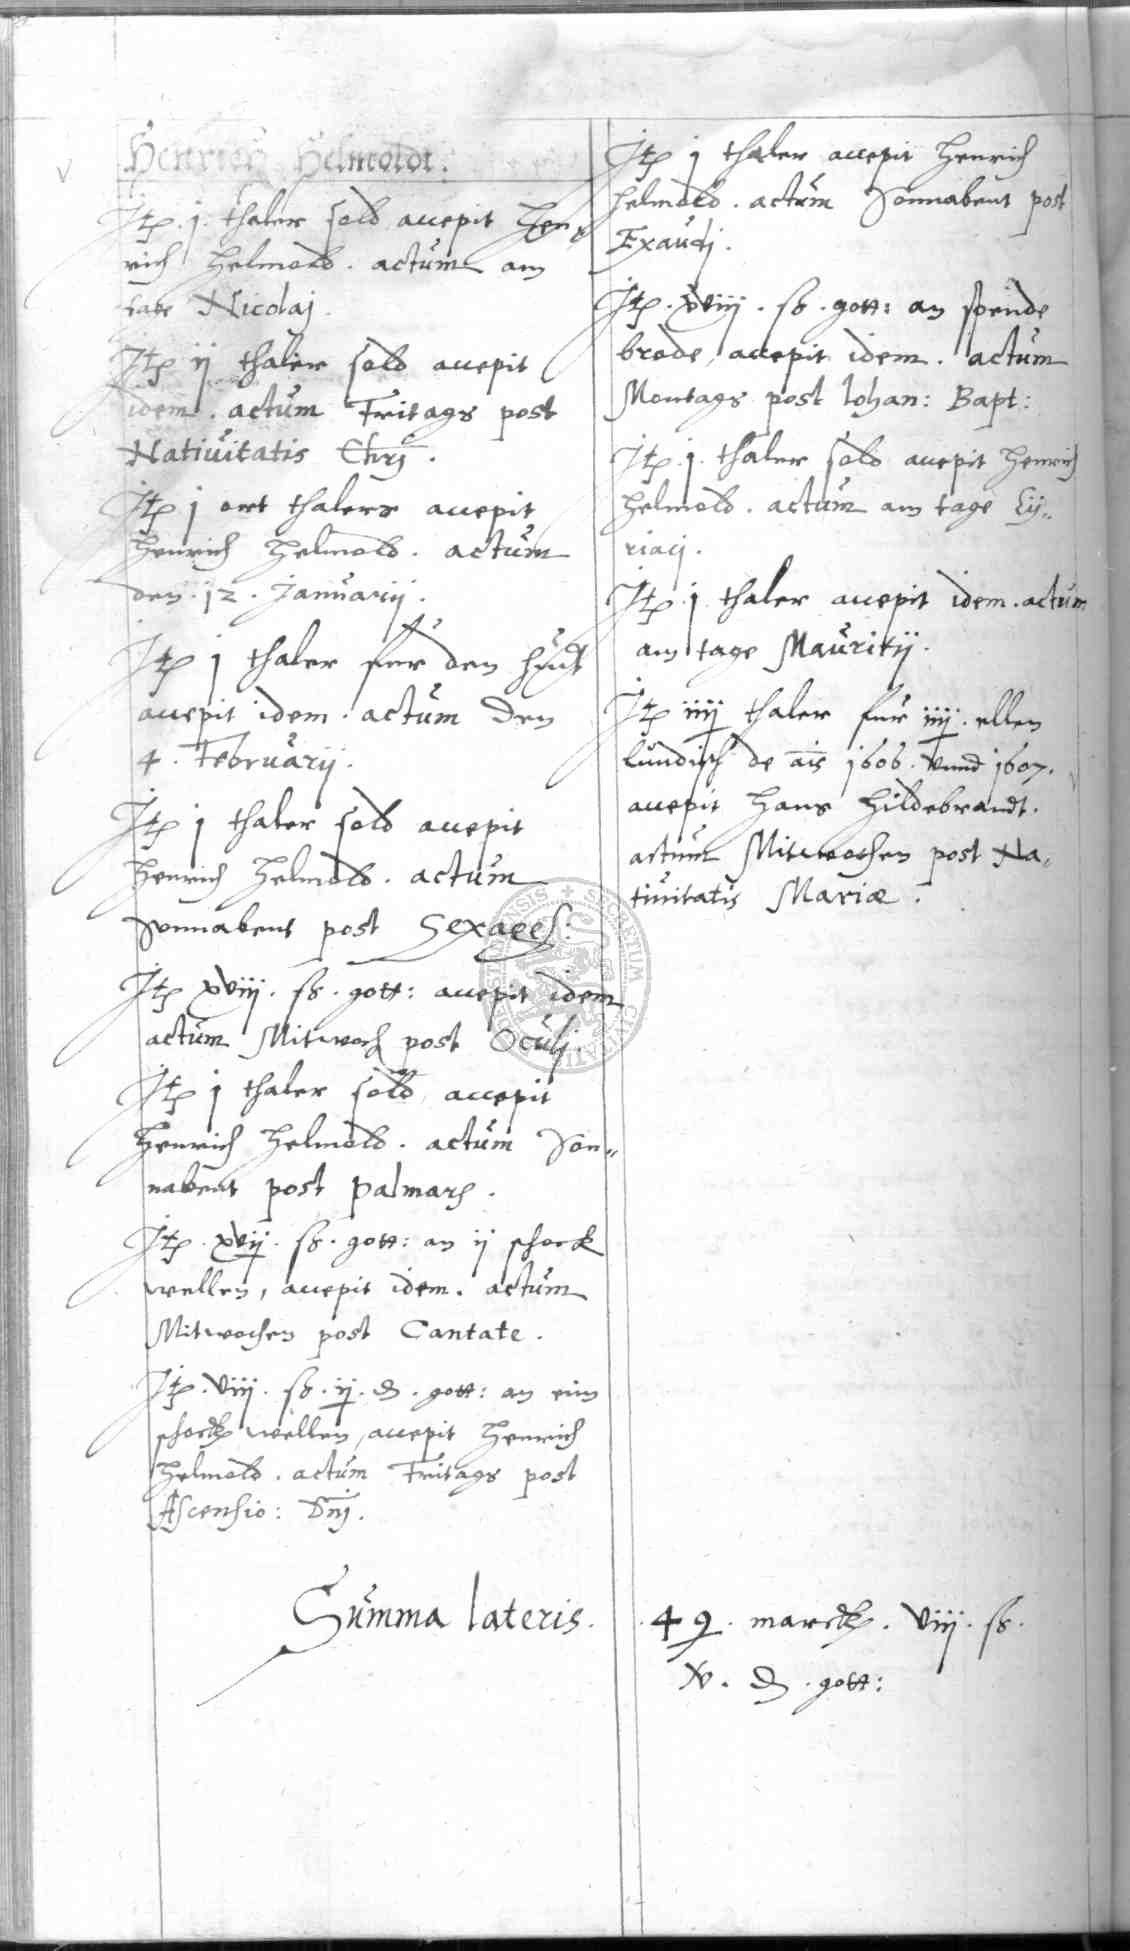 Henrich Helmoldt.
Itp. j. thaler sold accepit Hen„
rich Helmold. actum am
tage Nicolaj.
Itp ij thaler sold accepit
idem. actum Fritags post
Natiuitatis Chrj.
Itp j ort thalers accepit
Henrich Helmold. actum
den. 12. Januarij.
Itp j thaler fur den
accepit idem. actum den
4. Februarij.
Itp j thaler sold accepit
Henrich Helmold. actum
Sonnabent post Sexages:
Itp xviij. ß. gott: accepit idem
actum Mitwoch post Oculj.
Itp j thaler sold accepit
Henrich Helmold. actum Son„
nabent post Palmarum.
Itp. xvij. ß. gott: an ij schock
wellen, accepit idem. actum
Mitwochen post Cantate.
Itp. viij. ß. ij. d. gott: an eim
schock wellen, accepit Henrich
Helmold. actum Fritags post
Ascensio: Dnj.
Itp j thaler accepit Henrich
Helmold. actum Sonnabent post
Exaudj.
Itp. xviij. ß. gott: an spende
brode, accepit idem. actum
Montags post Johan: Bapt:
Itp. j. thaler sold accepit Henrich
Helmold. actum am tage Cy„
riacj.
Itp. j. thaler accepit idem. actum
am tage Mauritij.
Itp iiij thaler fur iiij. ellen
lundisch de ais 1606. vnnd 1607.
accepit Hans Hildebrandt.
actum Mitwochen post Na„
tiuitatis Mariæ.
Summa lateris. 49. marck. viij. ß.
v. d. gott:
SECRETUM